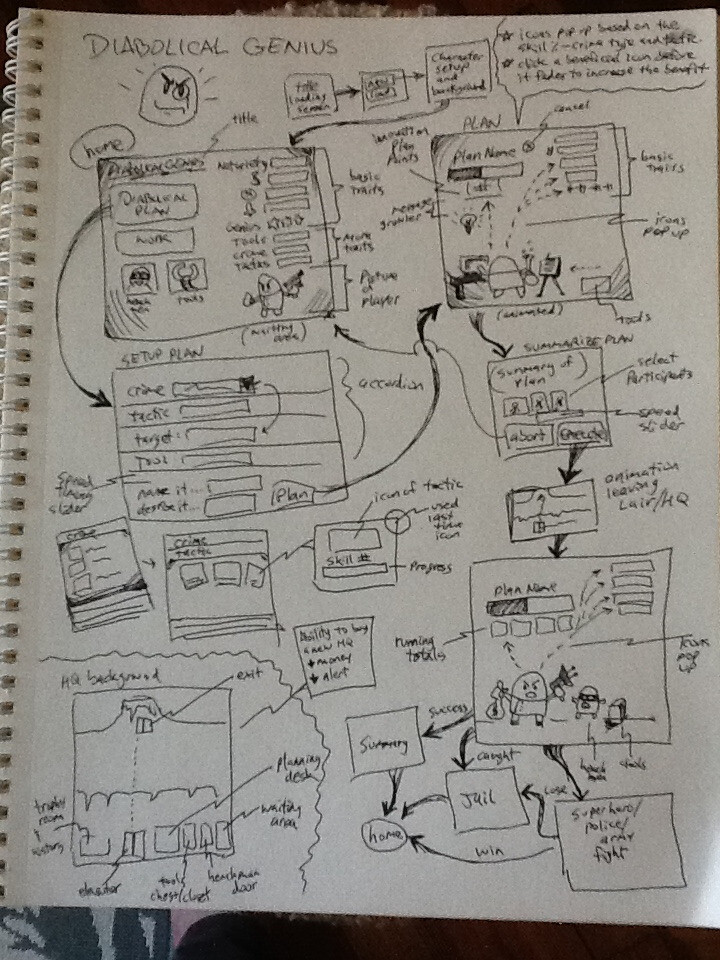 DIABOLICAL GENIUS
☆ icons pop up based on the
skill %-crime type and tactic.
☆ click a beneficial icon before
it fades to increase the benefit
title
loading
screen
new/
load
Character
setup
and
background
home
title
DIABOLICAL GENIUS
Notoriety
$
DIABOLICAL
PLAN
WORK
hench
men
tools
Genius
Tools
crime
Tactics
basic
traits
more
traits
Picture
of
player
(waiting
area)
PLAN
cancel
Plan Name
innovation
Plan
Points
message
growler
$
basic
traits
icons
pop up
(animated)
tools
SETUP PLAN
crime
tactic
target:
Tool
name it...
describe it...
Plan
accordion
Speed
timing
slider
SUMMARIZE PLAN
(summary of
plan)
abort
Execute
select
Participants
speed
slider
animation
leaving
Lair/HQ
crime
crime
tactic
icon of tactic
used
last
time
icon
skill #
Progress
Plan Name
running
totals
icons
pop
up
hench
men
tools
Ability to buy
a new HQ
↓ money
↓ alert
HQ background
exit
planning
desk
waiting
area
trophy
room
&
visitors
elevator
tools
chest/closet
henchman
door
success
Summary
caught
Jail
lose
superhero/
police/
army
fight
home
win